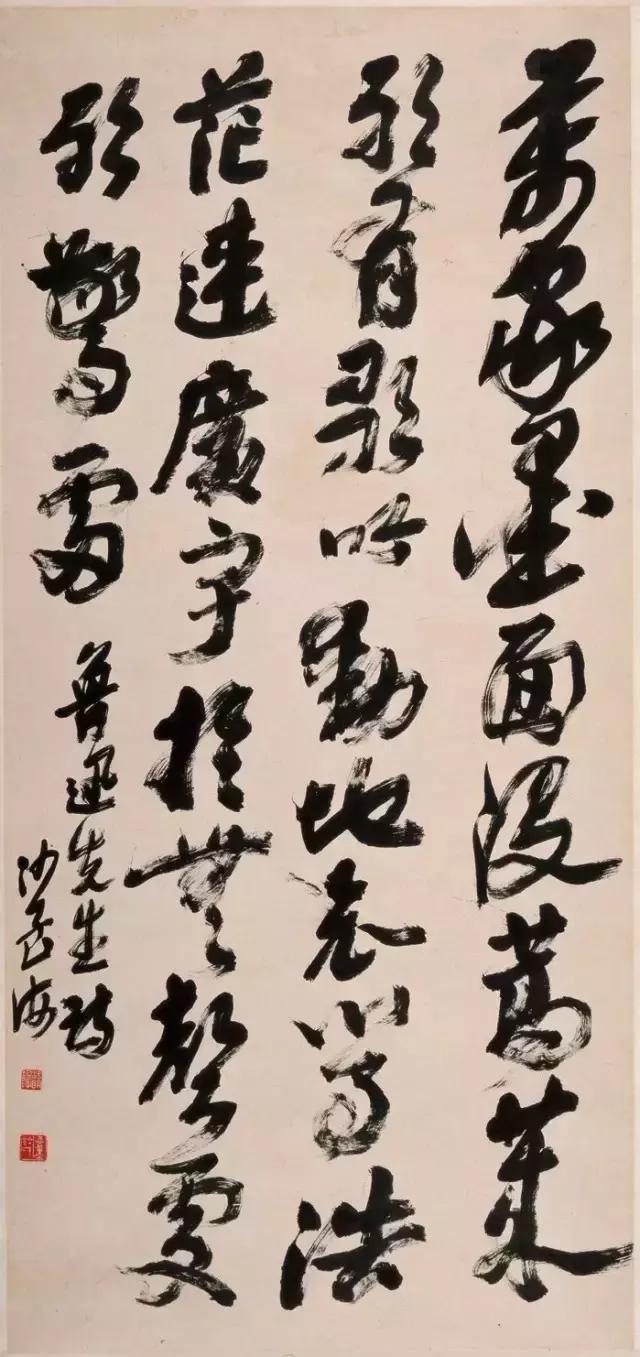 萬家墨面沒蒿萊
敢有歌吟動地哀心事浩
茫連廣宇於無聲處
聽驚雷 魯迅先生詩
沙孟海